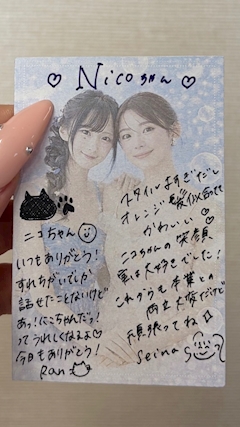 ♡ Nicoちゃん ♡
ニコちゃん
いつもありがとう!
すれちがいでしか
話せたことないけど
あっ!にこちゃんだっ!
ってうれしくなるよ♡
今日もありがとう!
Ran
スタイルよすぎだし
オレンジ髪似合ってて
かわいい♡
ニコちゃんの笑顔
実は大好きでした!
これからも学業との
両立大変だけど
頑張ってね☆
Seina